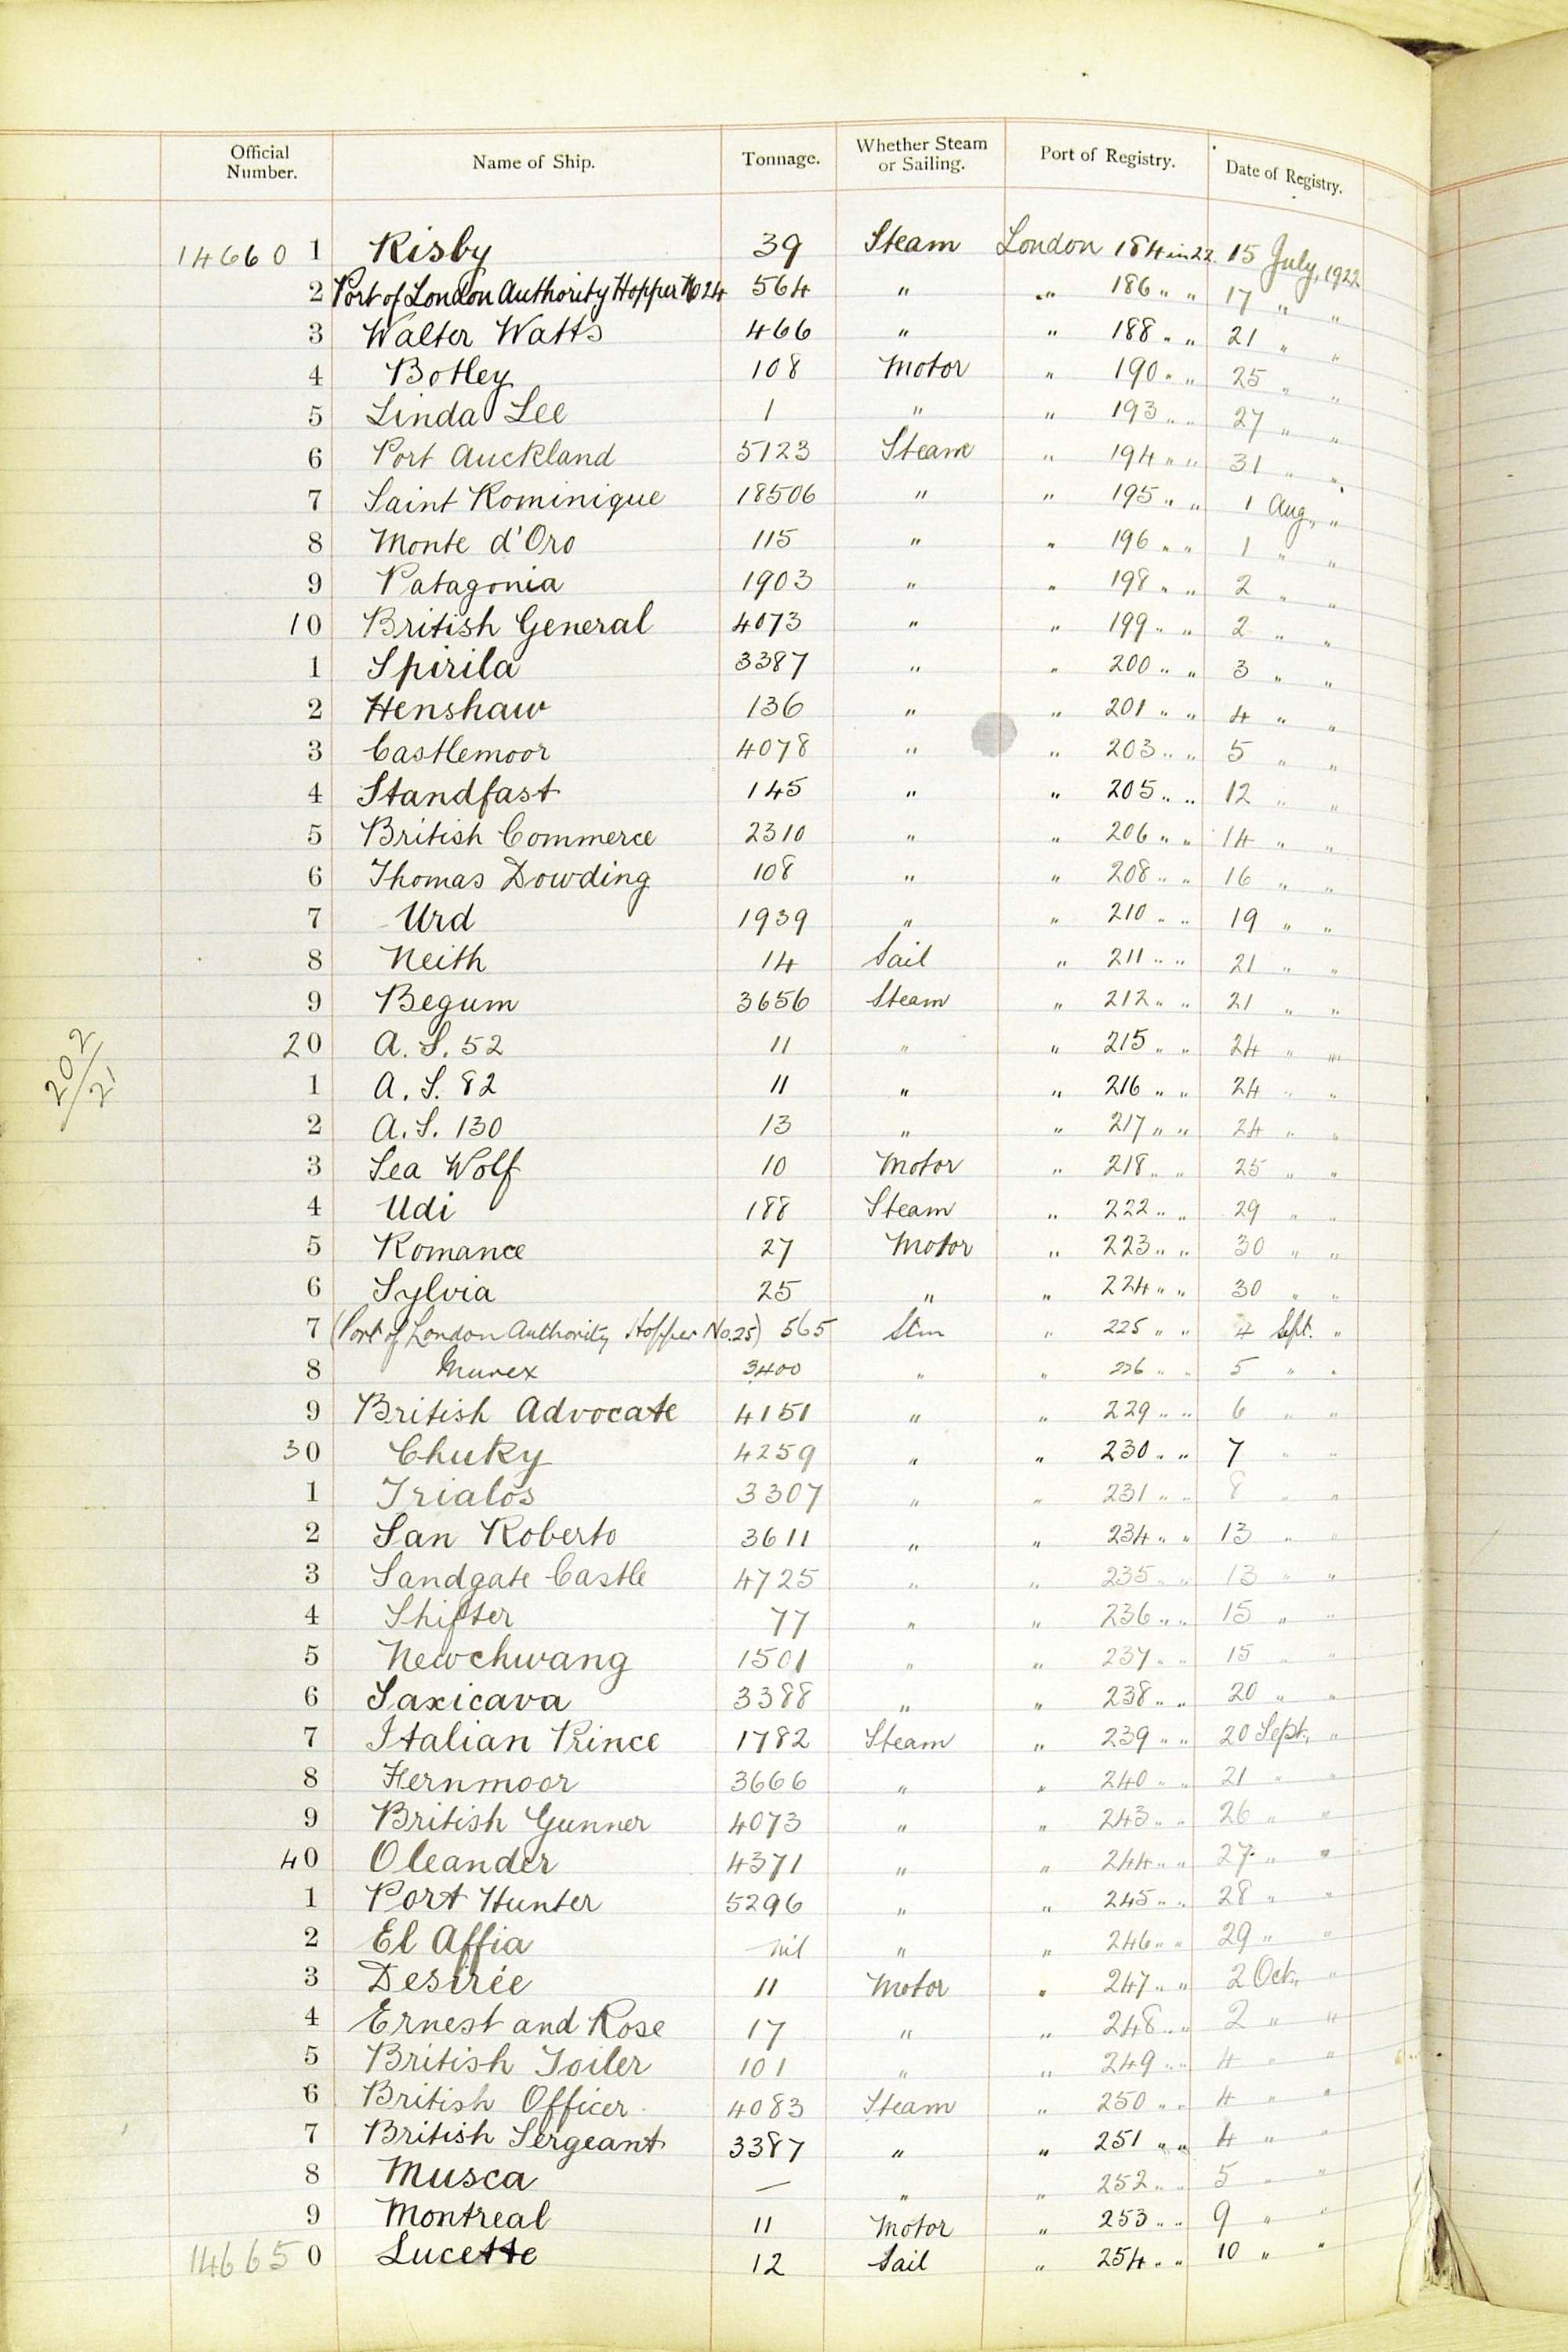 Official Number. Name of Ship. Tonnage. Whether Steam or Sailing. Port of Registry. Date of Registry.
14660 1 Risby 39 Steam London 184 in 22 15 July, 1922
2 Port of London Authority Hopper No 24 564 " " 186 " " 17 " "
3 Walter Watts 466 " " 188 " " 21 " "
4 Botley 108 Motor " 190 " " 25 " "
5 Linda Lee 1 " " 193 " " 27 " "
6 Port Auckland 5123 Steam " 194 " " 31 " "
7 Saint Rominique 18506 " " 195 " " 1 Aug, "
8 Monte d'Oro 115 " " 196 " " 1 " "
9 Patagonia 1903 " " 198 " " 2 " "
10 British General 4073 " " 199 " " 2 " "
1 Spirila 3387 " " 200 " " 3 " "
2 Henshaw 136 " " 201 " " 4 " "
3 Castlemoor 4078 " " 203 " " 5 " "
4 Standfast 145 " " 205 " " 12 " "
5 British Commerce 2310 " " 206 " " 14 " "
6 Thomas Dowding 108 " " 208 " " 16 " "
7 Urd 1939 " " 210 " " 19 " "
8 Neith 14 Sail " 211 " " 21 " "
9 Begum 3656 Steam " 212 " " 21 " "
20 A. S. 52 11 " " 215 " " 24 " "
202/21
1 A. S. 82 11 " " 216 " " 24 " "
2 A. S. 130 13 " " 217 " " 24 " "
3 Sea Wolf 10 Motor " 218 " " 25 " "
4 Udi 188 Steam " 222 " " 29 " "
5 Romance 27 Motor " 223 " " 30 " "
6 Sylvia 25 " " 224 " " 30 " "
7 (Port of London Authority Hopper No. 25) 565 Stm " 225 " " 4 Sept. "
8 Murex 3400 " " 226 " " 5 " "
9 British Advocate 4151 " " 229 " " 6 " "
30 Chuky 4259 " " 230 " " 7 " "
1 Trialos 3307 " " 231 " " 8 " "
2 San Roberto 3611 " " 234 " " 13 " "
3 Sandgate Castle 4725 " " 235 " " 13 " "
4 Shifter 77 " " 236 " " 15 " "
5 Newchwang 1501 " " 237 " " 15 " "
6 Saxicava 3388 " " 238 " " 20 " "
7 Italian Prince 1782 Steam " 239 " " 20 Sept., "
8 Fernmoor 3666 " " 240 " " 21 " "
9 British Gunner 4073 " " 243 " " 26 " "
40 Oleander 4371 " " 244 " " 27 " "
1 Port Hunter 5296 " " 245 " " 28 " "
2 El Affia nil " " 246 " " 29 " "
3 Desirée 11 Motor " 247 " " 2 Oct., "
4 Ernest and Rose 17 " " 248 " " 2 " "
5 British Toiler 101 " " 249 " " 4 " "
6 British Officer 4083 Steam " 250 " " 4 " "
7 British Sergeant 3387 " " 251 " " 4 " "
8 Musca — " " 252 " " 5 " "
9 Montreal 11 Motor " 253 " " 9 " "
14665 0 Lucette 12 Sail " 254 " " 10 " "